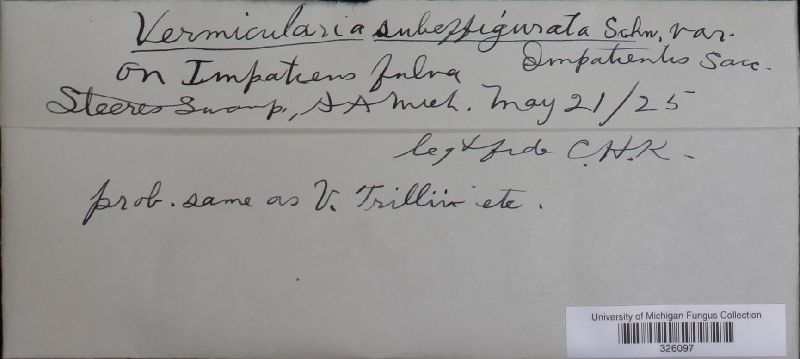 Vermicularia subeffigurata Schw. var.
on Impatiens fulva Impatientis Sacc.
Steeres Swamp, A A Mich. May 21/25
leg & fide C.H.K.
prob. same as V. Trillii etc.
University of Michigan Fungus Collection
326097